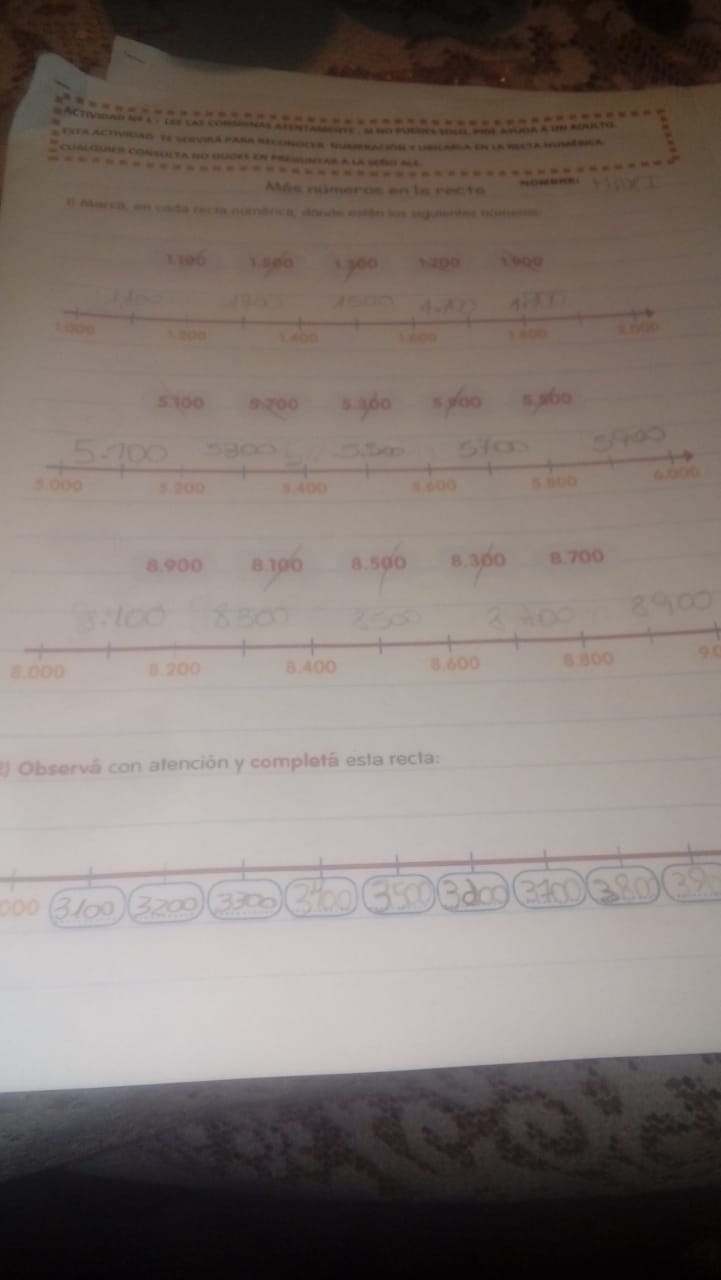 ACTIVIDAD Nº 1: LEE LAS CONSIGNAS ATENTAMENTE. SI NO PUEDES SOLO, PIDE AYUDA A UN ADULTO.
ESTA ACTIVIDAD TE SERVIRÁ PARA RECONOCER NUMERACIÓN Y UBICARLA EN LA RECTA NUMÉRICA.
CUALQUIER CONSULTA NO DUDES EN PREGUNTAR A LA SEÑO ALE.
Más números en la recta NOMBRE:
1) Marcá, en cada recta numérica, dónde están los siguientes números:
1.100 1.500 1.300 1.900
1.100 1500
1.000 1.200 1.400 1.600 1.800 2.000
5.100 5.700 5.300 5.900 5.500
5.100 5300 5.500 5700 5900
5.000 5.200 5.400 5.600 5.800 6.000
8.900 8.100 8.500 8.300 8.700
8.100 8300 8500 8700 8900
8.000 8.200 8.400 8.600 8.800 9.0
2) Observá con atención y completá esta recta:
000 3100 3200 3300 3400 3500 3600 3700 3800 39